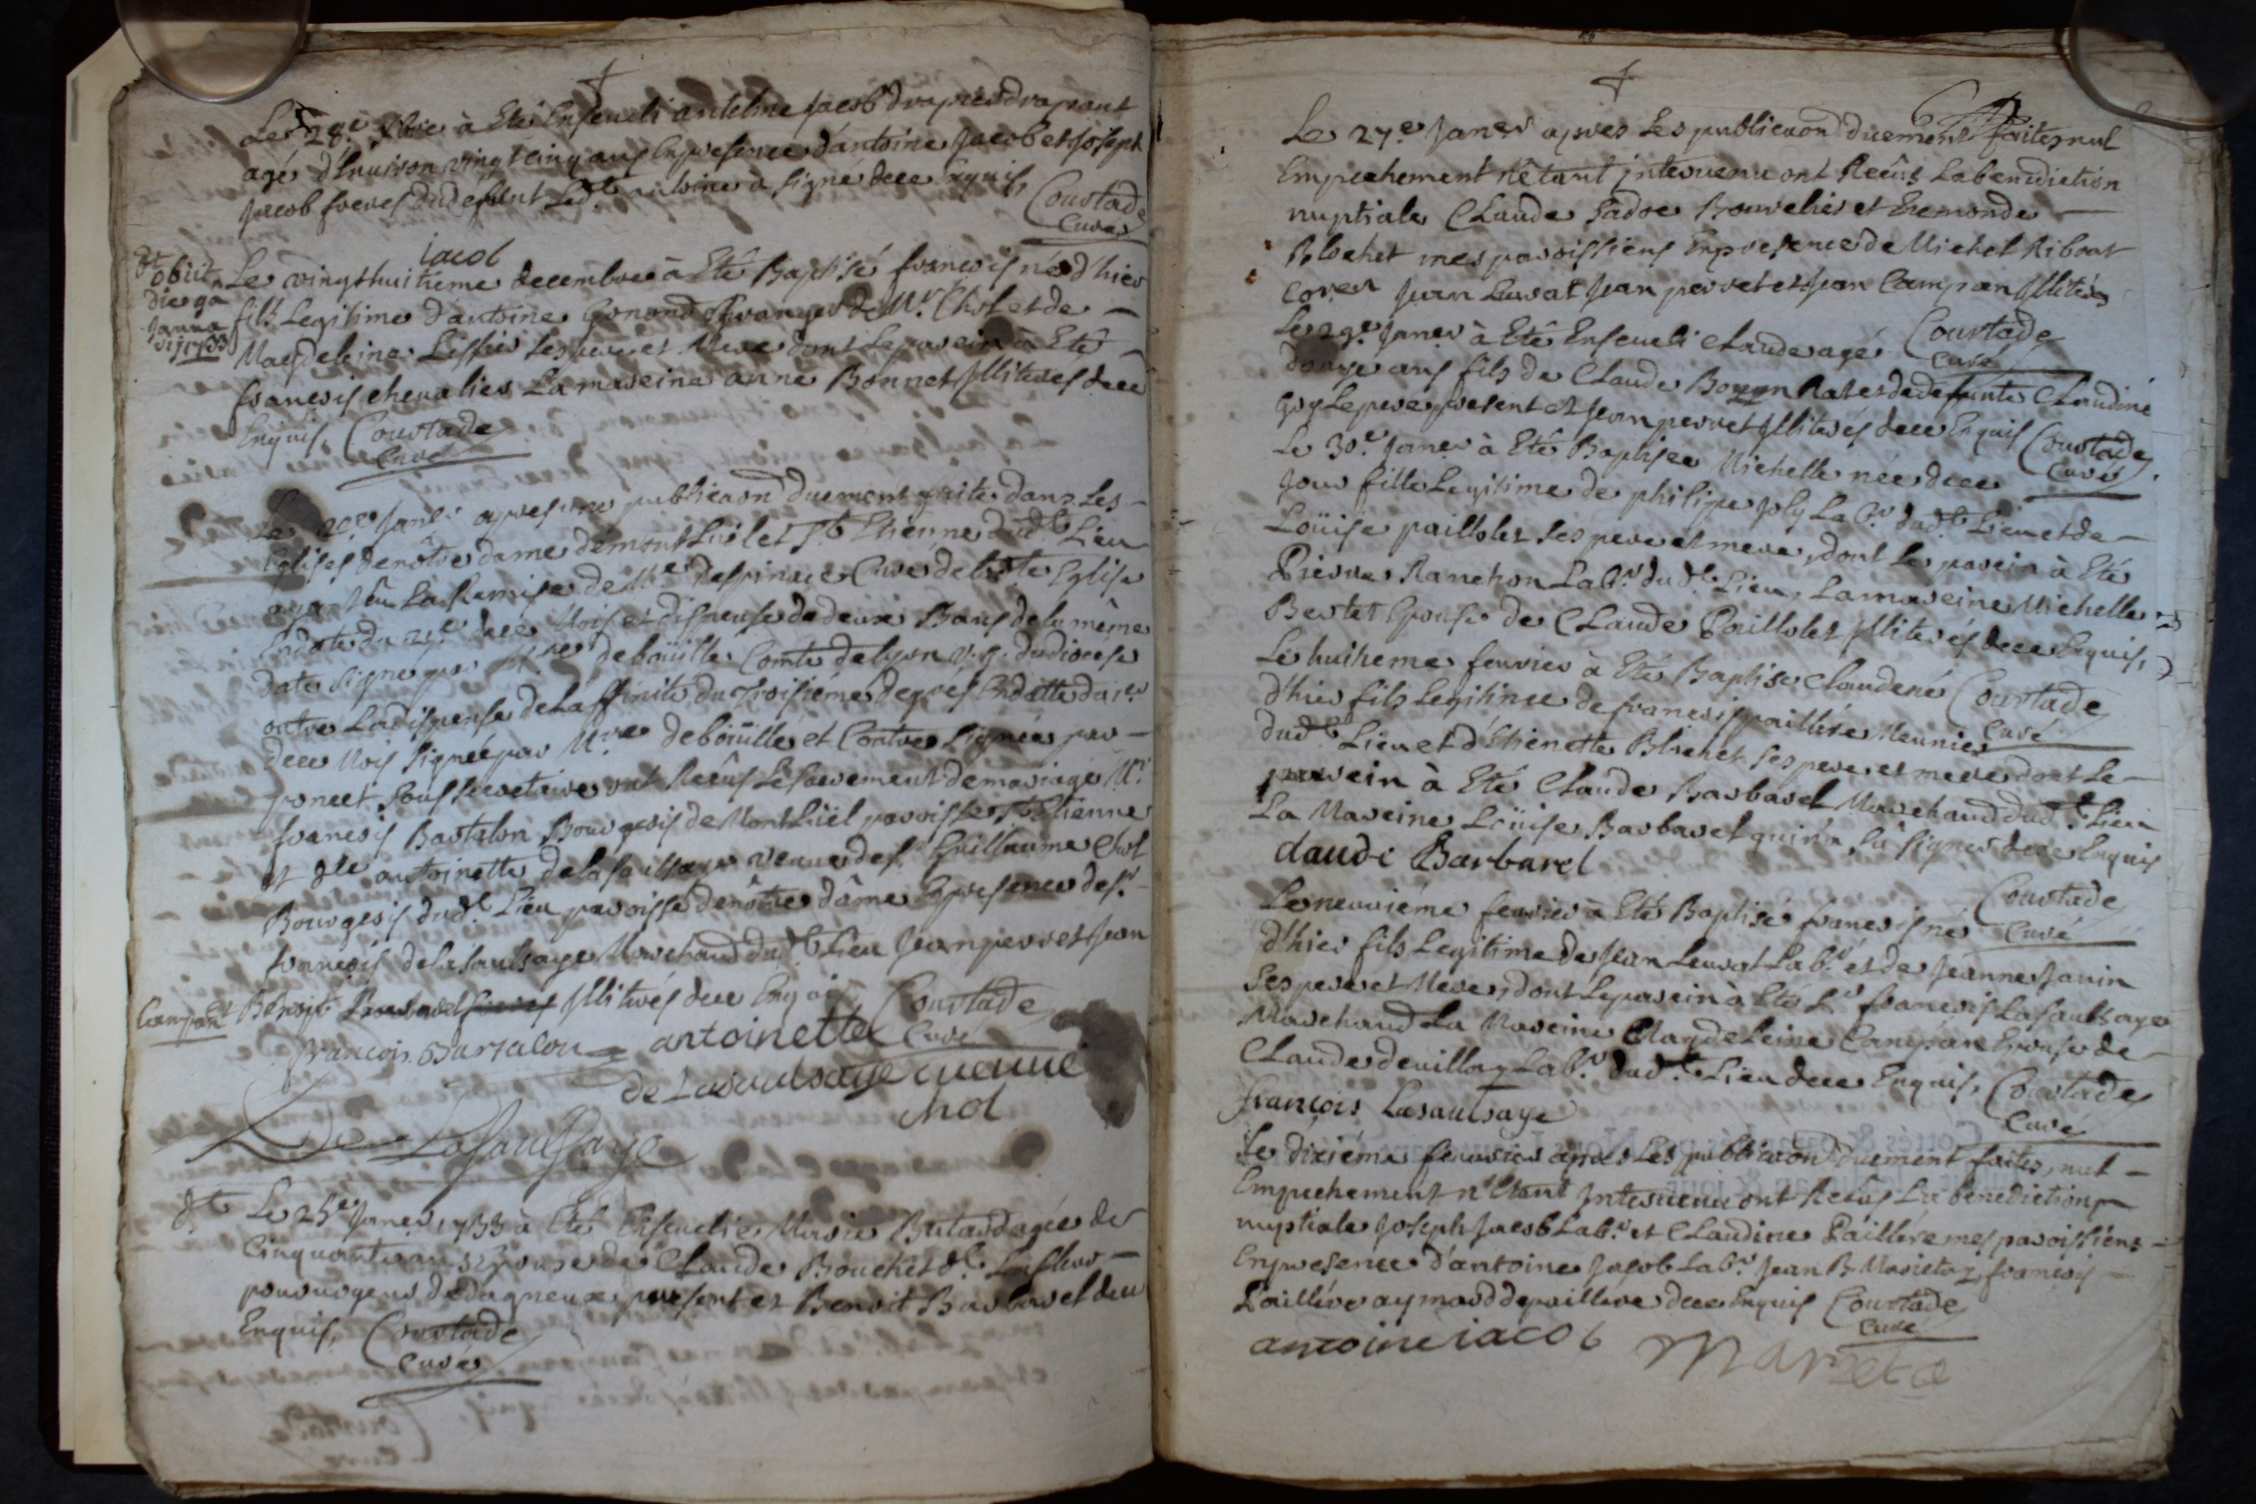 Le 28.e Xbre à Eté Enseveli antelme Jacob drapier drapant
agé d'Environ vingt cinq ans En presence d'antoine Jacob et Joseph
Jacob freres du defunt Led.t antoine a signé dece Enquis,
Courtade
Curé
iacob
obiit
die 9a
Janua
rij 1733
Le vingt huitieme decembre à Eté Baptisé francois né d'hier
fils Legitime d'antoine Gonand Granger de Mr. Chol et de
Magdeleine Liffier ses pere et Mere dont Le parein à Eté
francois chevalier La mareine anne Bonnet Illiterés dece
Enquis, Courtade
Curé
Le Janer apres une publicaon duement faite dans Les
Eglises de nôtre dame de montLuel et St. Etienne dud.t Lieu
ayant vû La Remise de Mre Despinace Curé de lad.te Eglise
En date du dece Mois et dispense de deux Bans de la même
date signé par Mre de boüille Comte de Lyon v.g. du diocese
outre La dispense de L'affinité du troisiéme degrés En datte du
dece Mois Signée par Mre de boüille et Contre Signée par
poncet sous secretaire ont Receus Le sacrement de mariage Mr.
francois Bartalon Bourgeois de MontLüel paroisse St. Etienne
et dlle antoinette de la saulsaye veuve de sr Guillaume Chol
Bourgeois dud.t Lieu paroisse de nôtre dâme En presence de sr
françois de la saulsaye Marchand dud.t Lieu Jean perret Jean
Campan et Benoit Barbaret Illiterés dece Enquis
Courtade
Curé
francois Bartalon antoinette
de Lasaulsaye veuve
chol
De Lasaulsaye
Le 25.e Janer 1733 à Eté Ensevelie Marie Butard agée de
Cinquante ans Epouse de Claude Bouchet dt Lafleur
pourvoyeur de dagneux present et Benoit Barbaret dece
Enquis, Courtade
Curé
Le 27.e Janer apres Les publicaons duement faites nul
Empechement n'êtant intervenu ont Receus La benediction
nuptiale Claude Fadoe Bourelier et Eremonde
Blochet mes paroissiens En presence de Michel Ribout
Jean Luvat Jean perret et Jean Campan Illiterés
Courtade
Curé
Le 29.e Janer à Eté Enseveli Claude agé
douze ans fils de Claude et de defunte Claudine
Goy Le pere present et Jean perret Illiterés dece Enquis Courtade
Curé
Le 30.e Janer à Eté Baptisée Michelle née dece
Jour fille Legitime de philipe Joly Lab.r dud.t Lieu et de
Loüise paillolet ses pere et mere, dont Le parein à Eté
Pierre Ranchon Lab.r dud.t Lieu, La mareine Michelle
Bertet Epouse de Claude Paillolet Illiterés dece Enquis,
Courtade
Curé
Le huitieme fevrier à Eté Baptisé Claude né
d'hier fils Legitime de francois paillére Meunier
dud.t Lieu et d'Etienette Blochet ses pere et mere dont Le
parein à Eté Claude Barbaret Marchand dud.t Lieu
La Mareine Loüise Barbaret qui n'a sû signer dece Enquis
Claude Barbarel
Courtade
Curé
Le neuviéme fevrier à Eté Baptisé francois né
d'hier fils Legitime de Jean Leuvat Lab.r et de Jeanne Janin
ses pere et Mere, dont Le parein à Eté Sr francois Lasaulsaye
Marchand La Mareine Magdeleine Campan Epouse de
Claude devillay Lab.r dud.t Lieu dece Enquis, Courtade
Curé
françois Lasaulsaye
Le dixiéme fevrier apres Les publicaons duement faites, nul
Empechement n'êtant Intervenu ont Receus La benediction
nuptiale Joseph Jacob Lab.r et Claudine Paillére mes paroissiens
En presence d'antoine Jacob Lab.r Jean B Marietaz, francois
Paillére aymard de paillere dece Enquis Courtade
Curé
antoine iacob